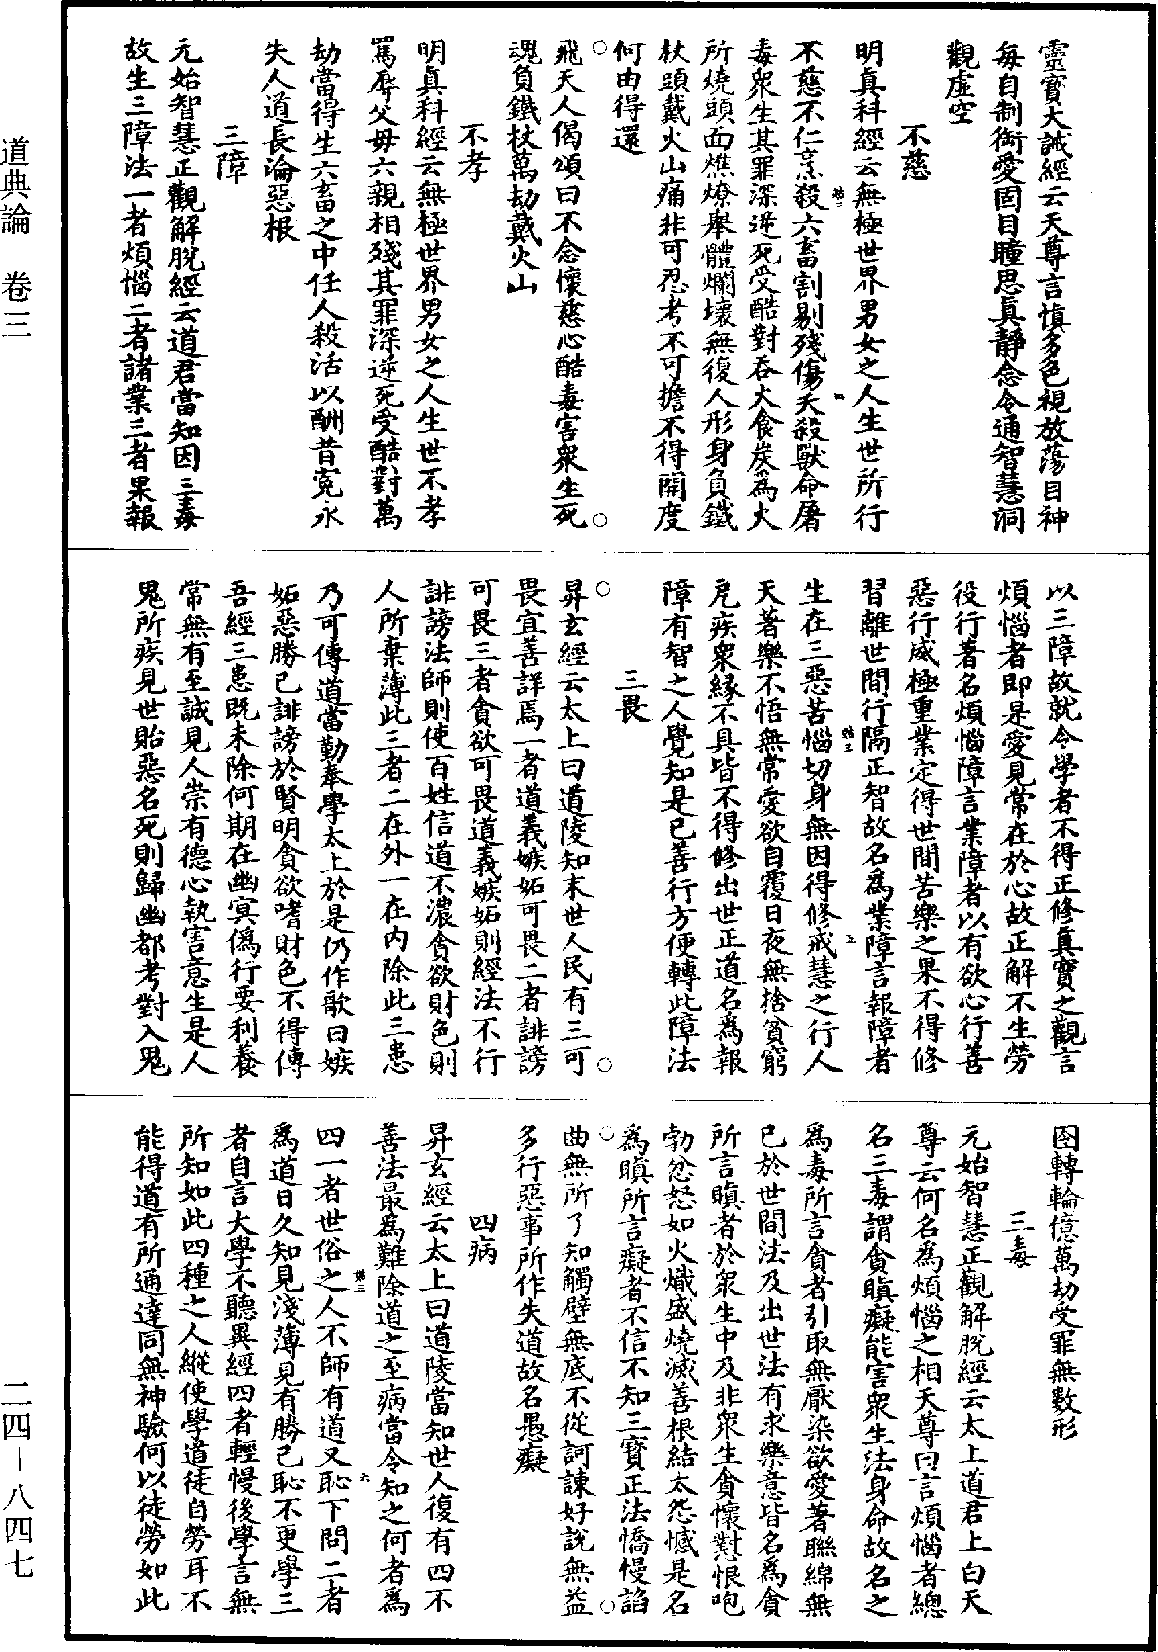 靈寶大誡經云天尊言慎多色視放蕩目神
每自制御愛固目瞳思真靜念令通智慧洞
觀虛空
不慈
明真科經云無極世界男女之人生世所行
不慈不仁烹殺六畜割剔殘傷夭殺獸命屠
毒衆生其罪深逆死受酷對吞火食炭爲火
所燒頭面燋燎舉體爛壞無復人形身負鐵
杖頭戴火山痛非可忍考不可擔不得開度
何由得還
飛天人偈頌曰不念懷慈心酷毒害衆生死
魂負鐵杖萬劫戴火山
不孝
明真科經云無極世界男女之人生世不孝
罵辱父母六親相殘其罪深逆死受酷對萬
劫當得生六畜之中任人殺活以酬昔寃永
失人道長淪惡根
三障
元始智慧正觀解脫經云道君當知因三毒
故生三障法一者煩惱二者諸業三者果報
以三障故就令學者不得正修真寶之觀言
煩惱者即是愛見常在於心故正解不生勞
役行著名煩惱障言業障者以有欲心行善
惡行威極重業定得世間苦樂之果不得修
習離世間行隔正智故名爲業障言報障者
生在三惡苦惱切身無因得修戒慧之行人
天著樂不悟無常愛欲自覆日夜無捨貧窮
尫疾衆緣不具皆不得修出世正道名爲報
障有智之人覺知是已善行方便轉此障法
三畏
昇玄經云太上曰道陵知末世人民有三可
畏宜善詳焉一者道義嫉妬可畏二者誹謗
可畏三者貪欲可畏道義嫉妬則經法不行
誹謗法師則使百姓信道不濃貪欲財色則
人所棄薄此三者二在外一在內除此三患
乃可傳道當勤奉學太上於是仍作歌曰嫉
妬惡勝己誹謗於賢明貪欲嗜財色不得傳
吾經三患既未除何期在幽冥僞行要利養
常無有至誠見人崇有德心執害意生是人
鬼所疾見世貽惡名死則歸幽都考對入鬼
圄轉輪億萬劫受罪無數形
三毒
元始智慧正觀解脫經云太上道君上白天
尊云何名爲煩惱之相天尊曰言煩惱者總
名三毒謂貪瞋癡能害衆生法身命故名之
爲毒所言貪者引取無厭染欲愛著聯綿無
已於世間法及出世法有求樂意皆名爲貪
所言瞋者於衆生中及非衆生貪懷懟恨咆
勃忿怒如火熾盛燒滅善根結太怨憾是名
爲瞋所言癡者不信不知三寶正法憍慢諂
曲無所了知觸壁無底不從訶諫好說無益
多行惡事所作失道故名愚癡
四病
昇玄經云太上曰道陵當知世人復有四不
善法最爲難除道之至病當令知之何者爲
四一者世俗之人不師有道又恥下問二者
爲道日久知見淺薄見有勝己恥不更學三
者自言大學不聽異經四者輕慢後學言無
所知如此四種之人縱使學道徒自勞耳不
能得道有所通達同無神驗何以徒勞如此
道典論 卷三
二四—八四七